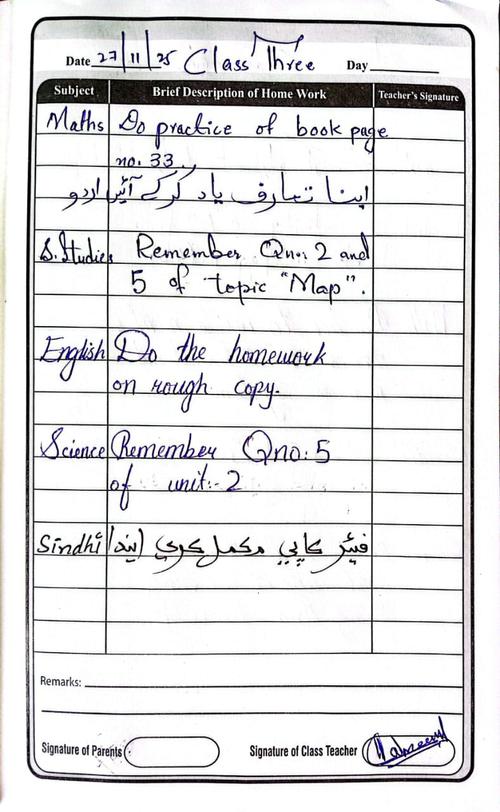 Date 27/11/25 Class Three Day
Subject Brief Description of Home Work Teacher's Signature
Maths Do practice of book page
no. 33.
اردو اپنا تعارف یاد کرکے آئیں
S.Studies Remember Qno: 2 and
5 of topic "Map".
English Do the homework
on rough copy.
Science Remember Qno: 5
of unit:- 2
Sindhi فيئر ڪاپي مڪمل ڪري ايندا
Remarks:
Signature of Parents Signature of Class Teacher